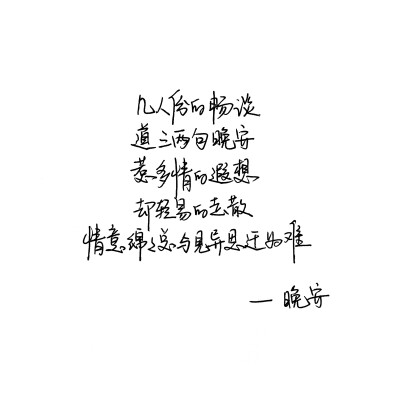 几人份的畅谈
道三两句晚安
惹多情的遐想
却轻易的走散
情意绵绵总与见异思迁为难
—晚安